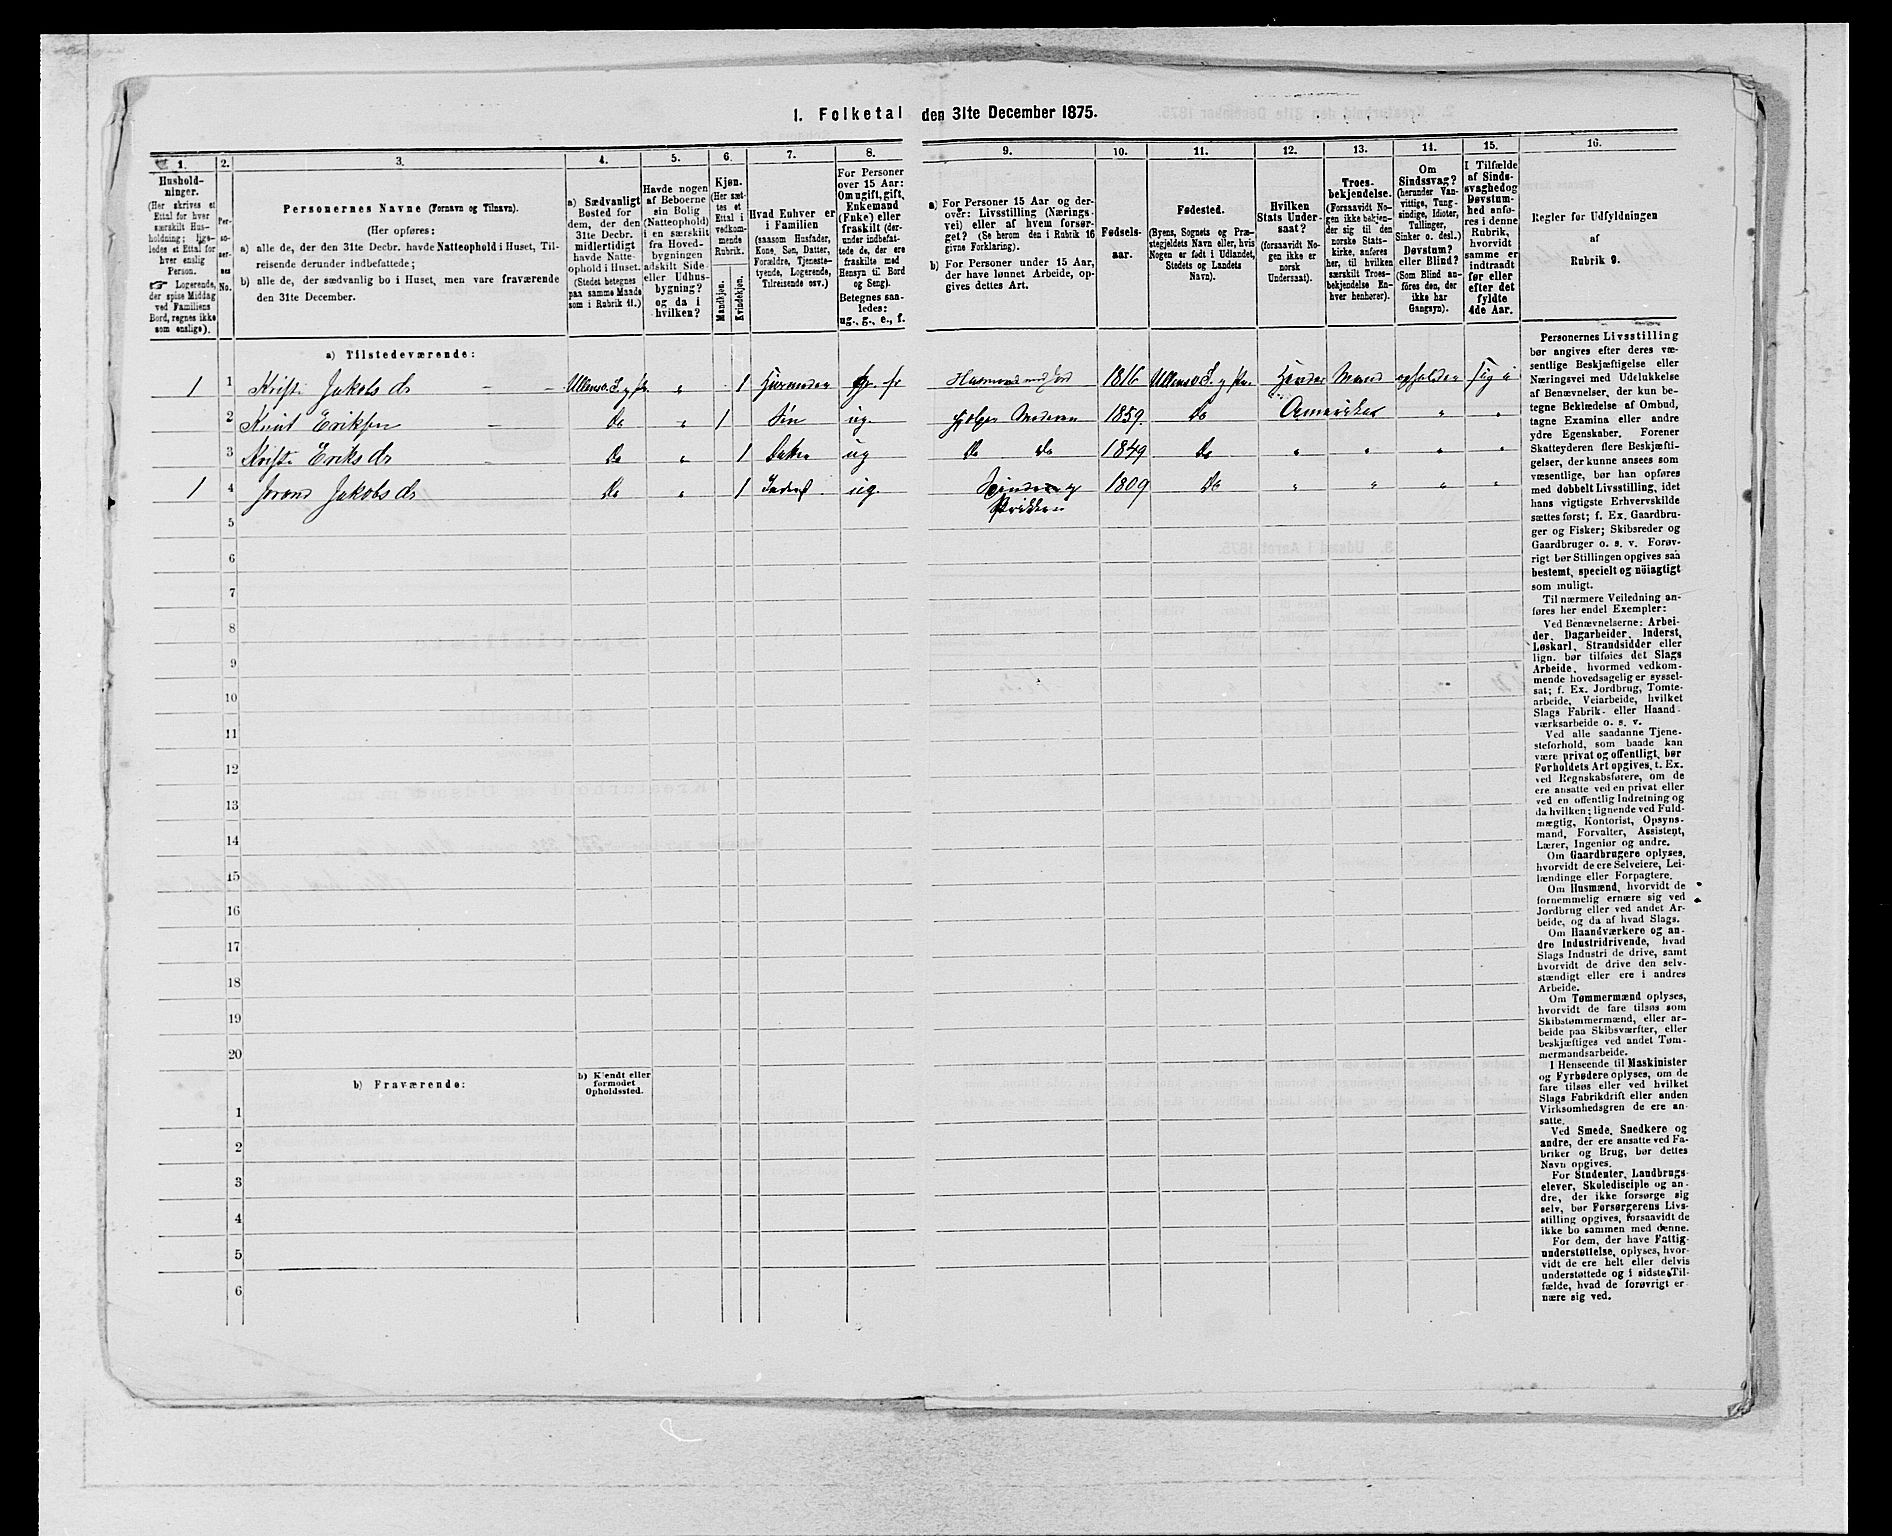 1. Folketal den 31te December 1875.
1.
2.
3.
4.
5.
6.
7.
8.
9.
10.
11.
12.
13.
14.
15.
16.
Hushold-
ninger.
(Her skrives et
Ettal for hver
særskilt Hus-
holdning; lige-
ledes et Ettal for
hver enslig
Person.
☞ Logerende,
der spise Middag
ved Familiens
Bord, regnes ikke
som enslige).
Per-
so-
ner-
nes
No.
Personernes Navne (Fornavn og Tilnavn).
(Her opføres:
a) alle de, der den 31te Decbr. havde Natteophold i Huset, Til-
reisende derunder indbefattede;
b) alle de, der sædvanlig bo i Huset, men vare fraværende
den 31te December.
a) Sædvanligt
Bosted for
dem, der den
31te Decbr.
midlertidigt
havde Natte-
ophold i Huset.
(Stedet betegnes
paa samme Maade
som i Rubrik 11.)
Havde nogen
af Beboerne
sin Bolig
(Natteophold)
i en særskilt
fra Hoved-
bygningen
adskilt Side-
eller Udhus-
bygning?
og da i
hvilken?
Kjøn.
(Her sæt-
tes et
Ettal i
vedkom-
mende
Rubrik.
Mandkjøn.
Kvindekjøn.
Hvad Enhver er
i Familien
(saasom Husfader,
Kone, Søn, Datter,
Forældre, Tjeneste-
tyende, Logerende,
Tilreisende osv.)
For Personer
over 15 Aar:
Om ugift, gift,
Enkemand
(Enke) eller
fraskilt (der-
under indbefat-
tede de, der ere
fraskilte med
Hensyn til Bord
og Seng).
Betegnes saa-
ledes:
ug., g., e., f.
a) For Personer 15 Aar og der-
over: Livsstilling (Nærings-
vei) eller af hvem forsør-
get? (Se herom den i Rubrik 16
givne Forklaring).
b) For Personer under 15 Aar,
der have lønnet Arbeide, op-
gives dettes Art.
Fødsels-
aar.
Fødested.
(Byens, Sognets og Præ-
stegjeldets Navn eller, hvis
Nogen er født i Udlandet,
Stedets og Landets
Navn).
Hvilken
Stats Under-
saat?
(forsaavidt No-
gen ikke er
norsk
Undersaat).
Troes-
bekjendelse.
(Forsaavidt No-
gen ikke bekjen-
der sig til den
norske Stats-
kirke, anføres
her, til hvilken
særskilt Troes-
bekjendelse En-
hver henhører).
Om
Sindssvag?
(herunder Van-
vittige, Tung-
sindige, Idioter,
Tullinger,
Sinker o. desl.)
Døvstum?
eller Blind?
(Som Blind an-
føres den, der
ikke har
Gangsyn).
I Tilfælde
af Sinds-
svaghed og
Døvstum-
hed anfø-
res i denne
Rubrik,
hvorvidt
samme er
indtraadt
før eller
efter det
fyldte
4de Aar.
Regler for Udfyldningen
af
Rubrik 9.
a) Tilstedeværende:
1 1 Jakobs dr " 1 1816
2 Knut Eriksen Do " 1 Søn ug. 1859. Do " "
3 Eriks dr Do " 1 ug Do do 1849 Do " " " "
1 4 Jakobs dr Do " 1 ug. 1809 Do " " " "
5
6
7
8
9
10
11
12
13
14
15
16
17
18
19
20
b) Fraværende:
b) Kjendt eller
formodet
Opholdssted.
1
2
3
4
5
6
Personernes Livsstilling
bør angives efter deres væ-
sentlige Beskjæftigelse eller
Næringsvei med Udelukkelse
af Benævnelser, der kun be-
tegne Beklædelse af Ombud,
tagne Examina eller andre
ydre Egenskaber. Forener
Skatteyderen flere Beskjæfti-
gelser, der kunne ansees som
væsentlige, bør han opføres
med dobbelt Livsstilling, idet
hans vigtigste Erhvervskilde
sættes først; f. Ex. Gaardbru-
ger og Fisker; Skibsreder og
Gaardbruger o. s. v. Forøv-
rigt bør Stillingen opgives saa
bestemt, specielt og nöiagtigt
som muligt.
Til nærmere Veiledning an-
føres her endel Exempler:
Ved Benævnelserne: Arbei-
der, Dagarbeider, Inderst,
Løskarl, Strandsidder eller
lign. bør tilføies det Slags
Arbeide, hvormed vedkom-
mende hovedsagelig er syssel-
sat; f. Ex. Jordbrug, Tomte-
arbeide, Veiarbeide, hvilket
Slags Fabrik- eller Haand-
værksarbeide o. s. v.
Ved alle saadanne Tjene-
steforhold, som baade kan
være privat og offentligt, bør
Forholdets Art opgives, t. Ex.
ved Regnskabsførere, om de
ere ansatte ved en privat eller
ved en offentlig Indretning og
da hvilken; lignende ved Fuld-
mægtig, Kontorist, Opsyns-
mand, Forvalter, Assistent,
Lærer, Ingeniør og andre.
Om Gaardbrugere oplyses,
hvorvidt de ere Selveiere, Lei-
lændinge eller Forpagtere.
Om Husmænd, hvorvidt de
fornemmelig ernære sig ved
Jordbrug eller ved andet Ar-
beide, og da af hvad Slags.
Om Haandværkere og an-
dre Industridrivende, hvad
Slags Industri de drive, samt
hvorvidt de drive den selv-
stændigt eller ere i andres
Arbeide.
Om Tømmermænd oplyses,
hvorvidt de fare tilsøs som
Skibstømmermænd, eller ar-
beide paa Skibsværfter, eller
beskjæftiges ved andet Tøm-
mermandsarbeide.
I Henseende til Maskinister
og Fyrbødere oplyses, om de
fare tilsøs eller ved hvilket
Slags Fabrikdrift eller anden
Virksomhedsgren de ere an-
satte.
Ved Smede, Snedkere og
andre, der ere ansatte ved Fa-
briker og Brug, bør dettes
Navn opgives.
For Studenter, Landbrugs-
elever, Skoledisciple og an-
dre, der ikke forsørge sig
selv, bør Forsørgerens Livs-
stilling opgives, forsaavidt de
ikke bo sammen med denne.
For dem, der have Fattig-
understøttelse, oplyses, hvor-
vidt de ere helt eller delvis
understøttede og i sidste Til-
fælde, hvad de forøvrigt er-
nære sig ved.